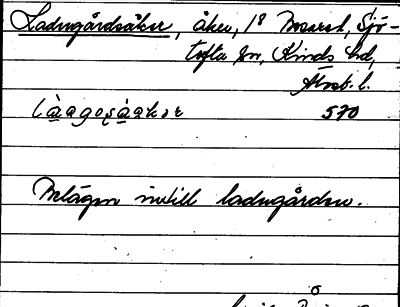 Ladugårdsåker, åker, 1⁸ Mosard, Sjö-
tofta sn, Kinds hd,
Älvsb. l.
làagosàakər 570
Belägen intill ladugården.